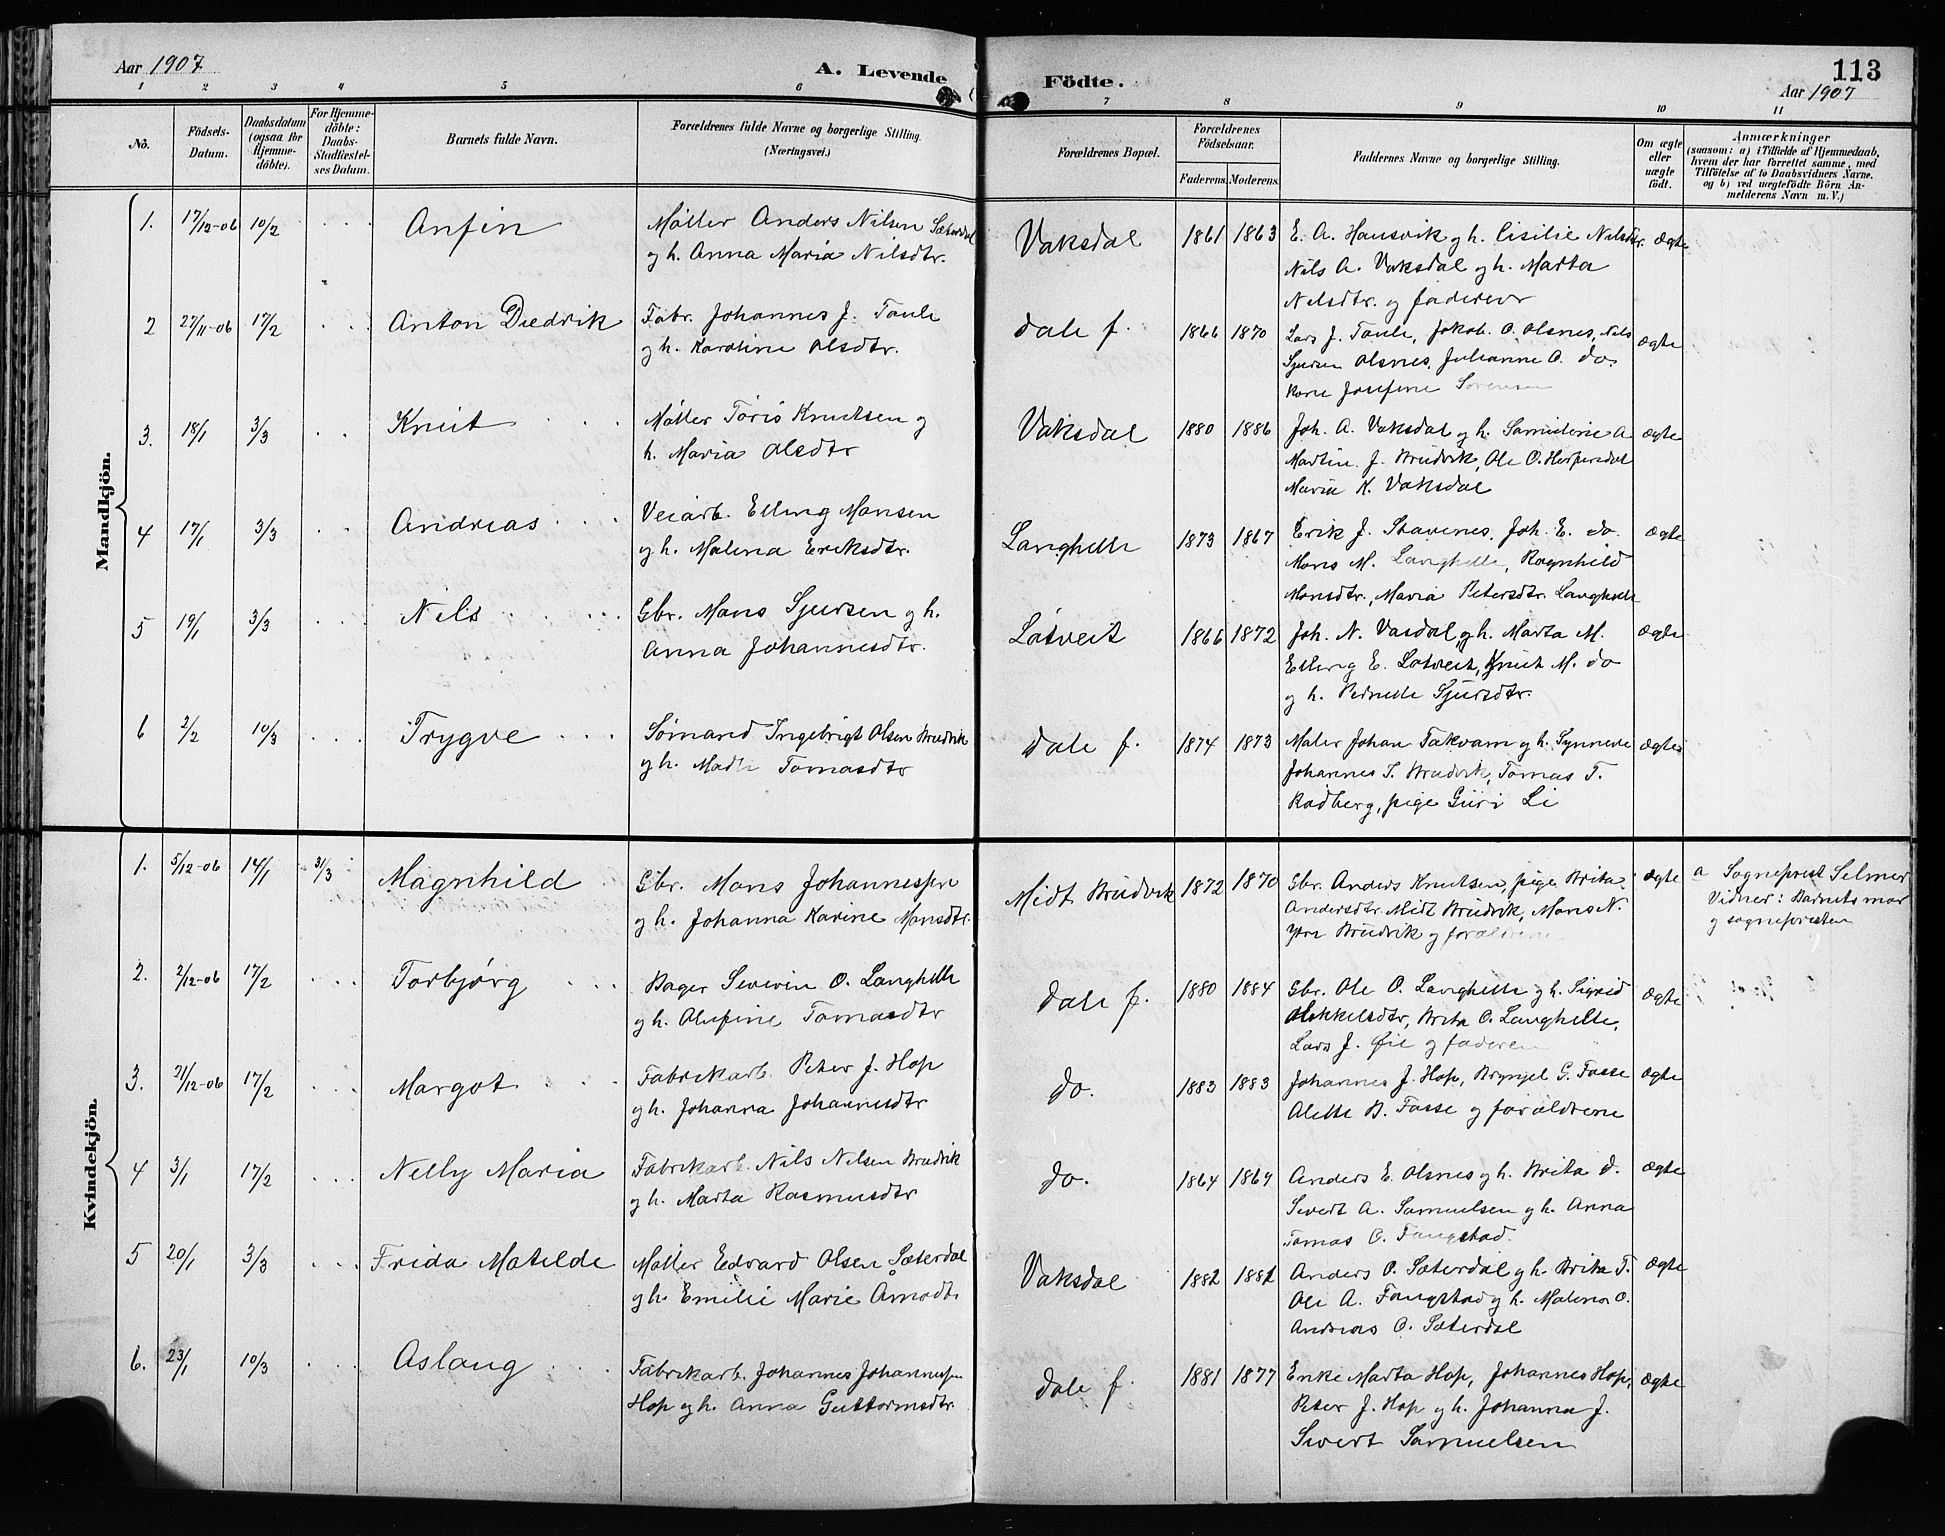 Aar 1907
A. Levende Födte.
113
Aar 1907
1 2 3 4 5 6 7 8 9 10 11
No.
Födsels-Datum.
Daabsdatum (ogsaa for Hjemmedöbte).
For Hjemmedöbte: Daabs-Stadfæstelses Datum.
Barnets fulde Navn.
Forældrenes fulde Navne og borgerlige Stilling. (Næringsvei.)
Forældrenes Bopæl.
Forældrenes Födselsaar.
Faderens. Moderens.
Faddernes Navne og borgerlige Stilling.
Om ægte eller uægte födt.
Anmærkninger
(saasom: a) i Tilfælde af Hjemmedaab, hvem der har forrettet samme, med Tilföielse af to Daabsvidners Navne, og b) ved uægtefödte Börn Anmelderens Navn m. V.)
Mandkjön.
1. 17/12-06 10/2 Anfin Møller Anders Nilsen Sæterdal Vaksdal 1861 1863 E. A. Hansvik og h. Cisilie Nilsdtr. Ægte
og h. Anna Maria Nilsdtr. Nils A. Vaksdal og h. Marta
Nilsdtr. og faderen
2 27/11-06 17/2 Anton Diedrik Fabr. Johannes J. Taule Dale f. 1866 1870 Lars J. Taule, Jakob O. Olsnes, Nils Ægte
og h. Karoline Olsdtr. Sjursen Olsnes, Julianne O. do.
Kone Josefine Sørensen
3. 18/1 3/3 Knut Møller Tøris Knutsen og Vaksdal 1880 1886 Joh. A. Vaksdal og h. Samueline A. Ægte
h. Maria Olsdtr Martin J. Bruvik, Ole O. Herfindal
Maria K. Vaksdal
4 17/1 3/3 Andreas Veiarb. Elling Monsen Langhelle 1873 1867 Erik J. Stavenes, Joh. E. do. Ægte
og h. Malina Eriksdtr. Mons M. Langhelle, Ragnhild
Monsdtr., Maria Petersdtr. Langhelle
5 19/1 3/3 Nils Gbr. Mons Sjursen og h. Låtveit 1866 1872 Joh. N. Vasdal og h. Marta M. Ægte
Anna Johannesdtr. Elling E. Låtveit, Knut M. do
og h. Pernelle Sjursdtr.
6 2/2 10/3 Trygve Sømand Ingebrigt Olsen Bruvik Dale f. 1874 1873 Maler Johan Takvam og h. Synneve Ægte
og h. Tomasdtr Johannes T. Bruvik, Tomas T.
Rødberg, pige Guri Li
Kvindekjön.
1. 5/12-06 14/1 31/3 Magnhild Gbr. Mons Johannessen Midt Bruvik 1872 1870 Gbr. Anders Knutsen, pige Brita Ægte a Sogneprest Selmer
og h. Johanna Karine Monsdtr. Andersdtr. Midt Bruvik, Mons N. Vidner: Barnets mor
Ytre Bruvik og forældrene og sognepresten
2. 2/12-06 17/2 Torbjørg Bager Severin O. Langhelle Dale f. 1880 1884 Gbr. Ole O. Langhelle og h. Sigrid Ægte
og h. Olufine Tomasdtr Brita O. Langhelle,
Lars J. Øie og faderen
3. 31/12-06 17/2 Margot Fabrikarb. Peter J. Hop do. 1883 1883 Johannes J. Hop, Brynjel G. Fosse Ægte
og h. Johanna Johannesdtr Alette B. Fosse og forældrene
4 3/1 17/2 Nelly Maria Fabrikarb. Nils Nilsen Bruvik do. 1864 1867 Anders E. Olsnes og h. Brita D. Ægte
og h. Marta Rasmusdtr Sivert A. Samuelsen og h. Anna
Tomas O. Fangstad.
5 20/1 3/3 Frida Matilde Møller Edvard Olsen Sæterdal Vaksdal 1882 1882 Anders O. Sæterdal og h. Brita T. Ægte
og h. Emilie Marie Åmodt. Ole A. Fangstad og h. Malena O.
Andreas O. Sæterdal
6. 23/1 10/3 Aslaug Fabrikarb. Johannes Johannessen Dale f. 1881 1877 Enke Marta Hop, Johannes Hop, Ægte
Hop og h. Anna Guttormsdtr. Peter J. Hop og h. Johanna J.
Sivert Samuelsen